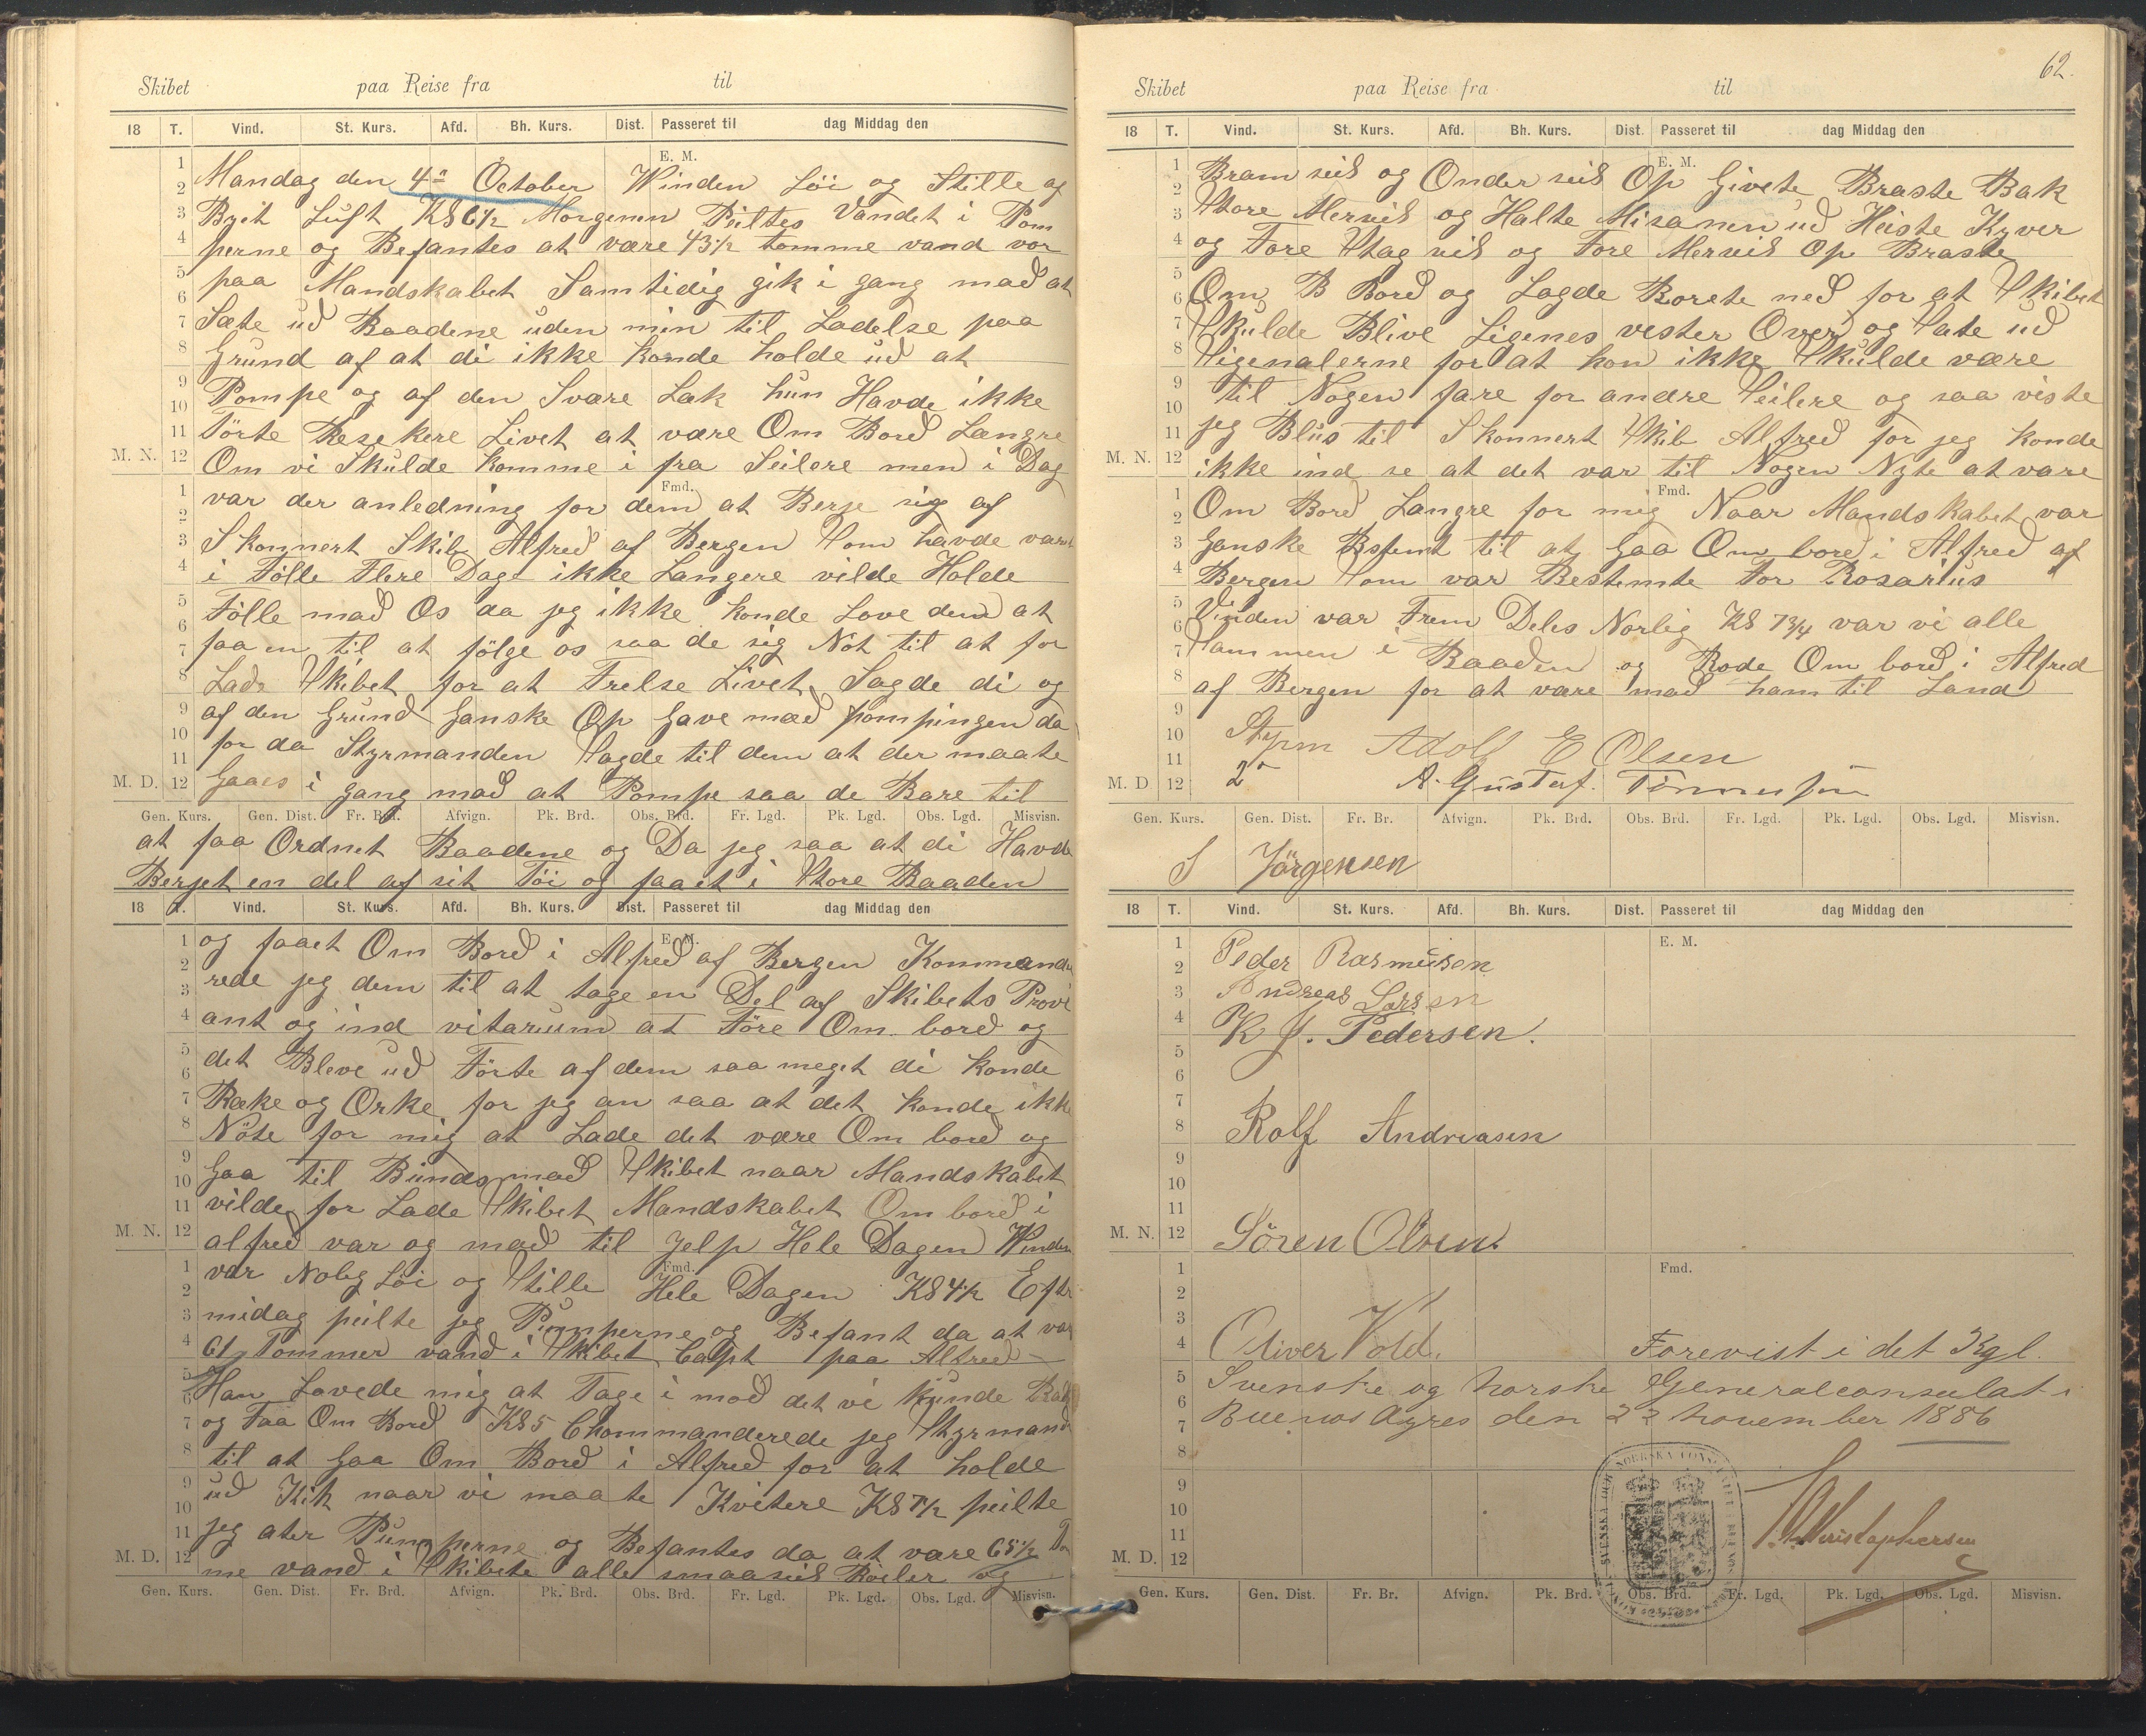 Skibet paa Reise fra til
18 T. Vind. St. Kurs. Afd. Bh. Kurs. Dist. Passeret til dag Middag den
E. M.
1 2 3 4 5 6 7 8 9 10 11 12
Mandag den 4de October Winden Löi og Stille af
Bygit Luft Kl 6½ Morgenen Peiltes Vandet i Pom
perne og Befantes at være 43½ tomme vand vor
paa Mandskabet Samtidig gik i gang mað at
Sæte uð Baadene uden min til Ladelse paa
Grund af at di ikke konde holde uð at
Pompe og af den Svare Læk hun Havde ikke
Törte Resekere Livet at være Om Borð Længre
M. N.
Om vi Skulde komme i fra Seilere men i Dag
Fmd.
1 2 3 4 5 6 7 8 9 10 11 12
var der anledning for dem at Berje sig af
Skonnert Skib Alfreð af Bergen Som havde vært
i Fölle Flere Dage ikke Længere vilde Holde
Fölle mað Os da jeg ikke konde Love dem at
faa en til at fölge os saa de sig Nöt til at for
Lade Skibet for at Frelse Livet Sagde di og
af den Grund Ganske Op Gave mæð pompingen da
for da Styrmanden Sagde til dem at der maate
M. D.
Gaaes i gang mað at Pompe saa de Bare til
Gen. Kurs. Gen. Dist. Fr. Brd. Afvign. Pk. Brd. Obs. Brd. Fr. Lgd. Pk. Lgd. Obs. Lgd. Misvisn.
at faa Ordnet Baadene og Da jeg saa at di Havde
Berjet en del af sit Töi og faaet i Store Baaden
18 T. Vind. St. Kurs. Afd. Bh. Kurs. Dist. Passeret til dag Middag den
E. M.
1 2 3 4 5 6 7 8 9 10 11 12
og faaet Om Borð i Alfreð af Bergen Kommande
rede jeg dem til at tage en Del af Skibets Provi
ant og ind vitarium at Före Om borð og
det Bleve uð Förte af dem saa meget di konde
Ræke og Orke for jeg an saa at det konde ikke
Nöte for mig at Lade det være Om borð og
Gaa til Bunds mað Skibet naar Mandskabet
vilde for Lade Skibet Mandskabet Om borð i
M. N.
alfreð var og mað til Jelp Hele Dagen Winden
Fmd.
1 2 3 4 5 6 7 8 9 10 11 12
var Nolig Löi og Stille Hele Dagen Kl 4½ Efter
midag peilte jeg Pumperne og Befant da at var
61 Tommer vanð i Skibet Capt paa Alfreð
Han Lovede mig at Tage i mod det vi kunde
og Faa Om Borð Kl 5 Chommanderede jeg Styrmand
til at Gaa Om Borð i Alfreð for at holde
uð Kik naar vi maate Kvitere Kl 7½ peilte
jeg ater Pumperne og Befantes da at vare 65½ Tom
M. D.
me vanð i Skibete alle smaaseil Röiler og
Gen. Kurs. Gen. Dist. Fr. Brd. Afvign. Pk. Brd. Obs. Brd. Fr. Lgd. Pk. Lgd. Obs. Lgd. Misvisn.
62.
Skibet paa Reise fra til
18 T. Vind. St. Kurs. Afd. Bh. Kurs. Dist. Passeret til dag Middag den
E. M.
1 2 3 4 5 6 7 8 9 10 11 12
Bram seil og Onder seil Op Givete Braste Bak
Store Merseil og Halte Misanen uð Heiste Kyver
og Fore Stag seil og Fore Merseil Op Braste
Om B Borð og Lagde Rorete neð for at Skibet
Skulde Blive Ligenes vester Over og Sate uð
Sigenalerne for at hon ikke Skulde være
til Nogen fare for andre Seilere og saa viste
jeg Blus til Skonnert Skib Alfreð for jeg konde
M. N.
ikke ind se at det var til Nogen Nyte at vare
Fmd.
1 2 3 4 5 6 7 8 9 10 11 12
Om Borð Langre for mig Naar Mandskabet var
Ganske Bstemt til at Gaa Om borð i Alfreð af
Bergen Som var Bestemte For Rosarius
Vinden var Frem Deles Norlig Kl 7¾ var vi alle
Sammen i Baaden og Rode Om borð i Alfred
af Bergen for at være mað ham til Land
Styrm Adolf E Olsen
M. D.
2n A. Gustaf. Tönnesen
Gen. Kurs. Gen. Dist. Fr. Br. Afvign. Pk. Brd. Obs. Brd. Fr. Lgd. Pk. Lgd. Obs. Lgd. Misvisn.
S Jörgensen
18 T. Vind. St. Kurs. Afd. Bh. Kurs. Dist. Passeret til dag Middag den
E. M.
1 2 3 4 5 6 7 8 9 10 11 12
Peder Rasmusen
Andreas Larsen
K J. Pedersen.
Rolf Andreasen
M. N.
Sören Olsen.
Fmd.
1 2 3 4 5 6 7 8 9 10 11 12
Oliver Vold. Forevist i det Kgl.
Svenske og norske Generalconsulat i
Buenos Ayres den 22 november 1886
SVENSKA OCH NORRSKA CONSULATET BUENOS
P. Christophersen
M. D.
Gen. Kurs. Gen. Dist. Fr. Br. Afvign. Pk. Brd. Obs. Brd. Fr. Lgd. Pk. Lgd. Obs. Lgd. Misvisn.